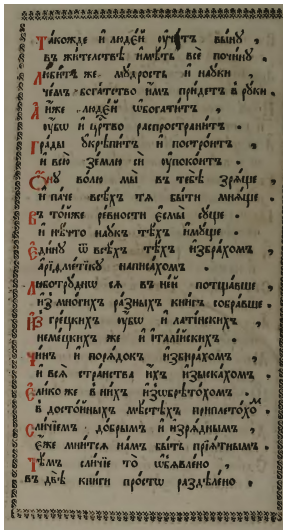 Та́кожде и҆ люде́й ᲂу҆чи́тъ вы́нꙋ ,
въ жи́телствѣ и҆мѣ́ть всѐ почи́нꙋ .
Лю́битъ же мꙋ́дрость и҆ наꙋ́ки ,
чѣ́мъ бога́тство и҆̀мъ прїи́детъ в рꙋ́ки .
А҆ и҆́же люде́й ѡ҆богати́тъ ,
ᲂу҆́бѡ и҆ црⷭ҇тво распространи́тъ .
Гра́ды ᲂу҆крѣпи́тъ и҆ постро́итъ ,
и҆ всю̀ зе́млю сѝ ᲂу҆поко́итъ .
Ѻ҆́нꙋ во́лю мы̀ въ тебѣ̀ зрѧ́ще ,
и҆ па́че всѣ́хъ тѧ̀ бы́ти мнѧ́ще .
Въ то́йже ре́вности є҆смы̀ сꙋ́ще ,
и҆ нѣ́что наꙋ́къ тѣ́хъ и҆мꙋ́ще .
Є҆ди́нꙋ ѿ всѣ́хъ тѣ́хъ и҆збра́хомъ ,
а҆рїѳме́тїкꙋ написа́хомъ .
Люботрꙋ́днѡ сѧ̀ въ не́й потща́вше ,
и҆з мно́гихъ ра́зныхъ кни́гъ собра́вше .
И҆з гре́цкихъ ᲂу҆́бѡ и҆ лати́нскихъ ,
неме́цкихъ же и҆ і҆талі́йскихъ .
Чи́нъ и҆ порѧ́докъ и҆збира́хомъ ,
и҆ всѧ̑ стра́нства и҆́хъ и҆зыска́хомъ .
Є҆ли́ко же в ни́хъ и҆з̾ѡбрѣто́хомъ ,
в досто́йныхъ мѣ́стѣхъ приплето́хом
Сли́чїемъ до́брымъ и҆ и҆зрѧ́днымъ ,
є҆́же мни́тсѧ на́мъ бы́ть прїѧ́тнымъ .
Тѣ́мъ сли́чїе то̀ ѡ҆б̾ѧвле́но ,
въ двѣ̀ кни́ги про́стѡ раздѣле́но .